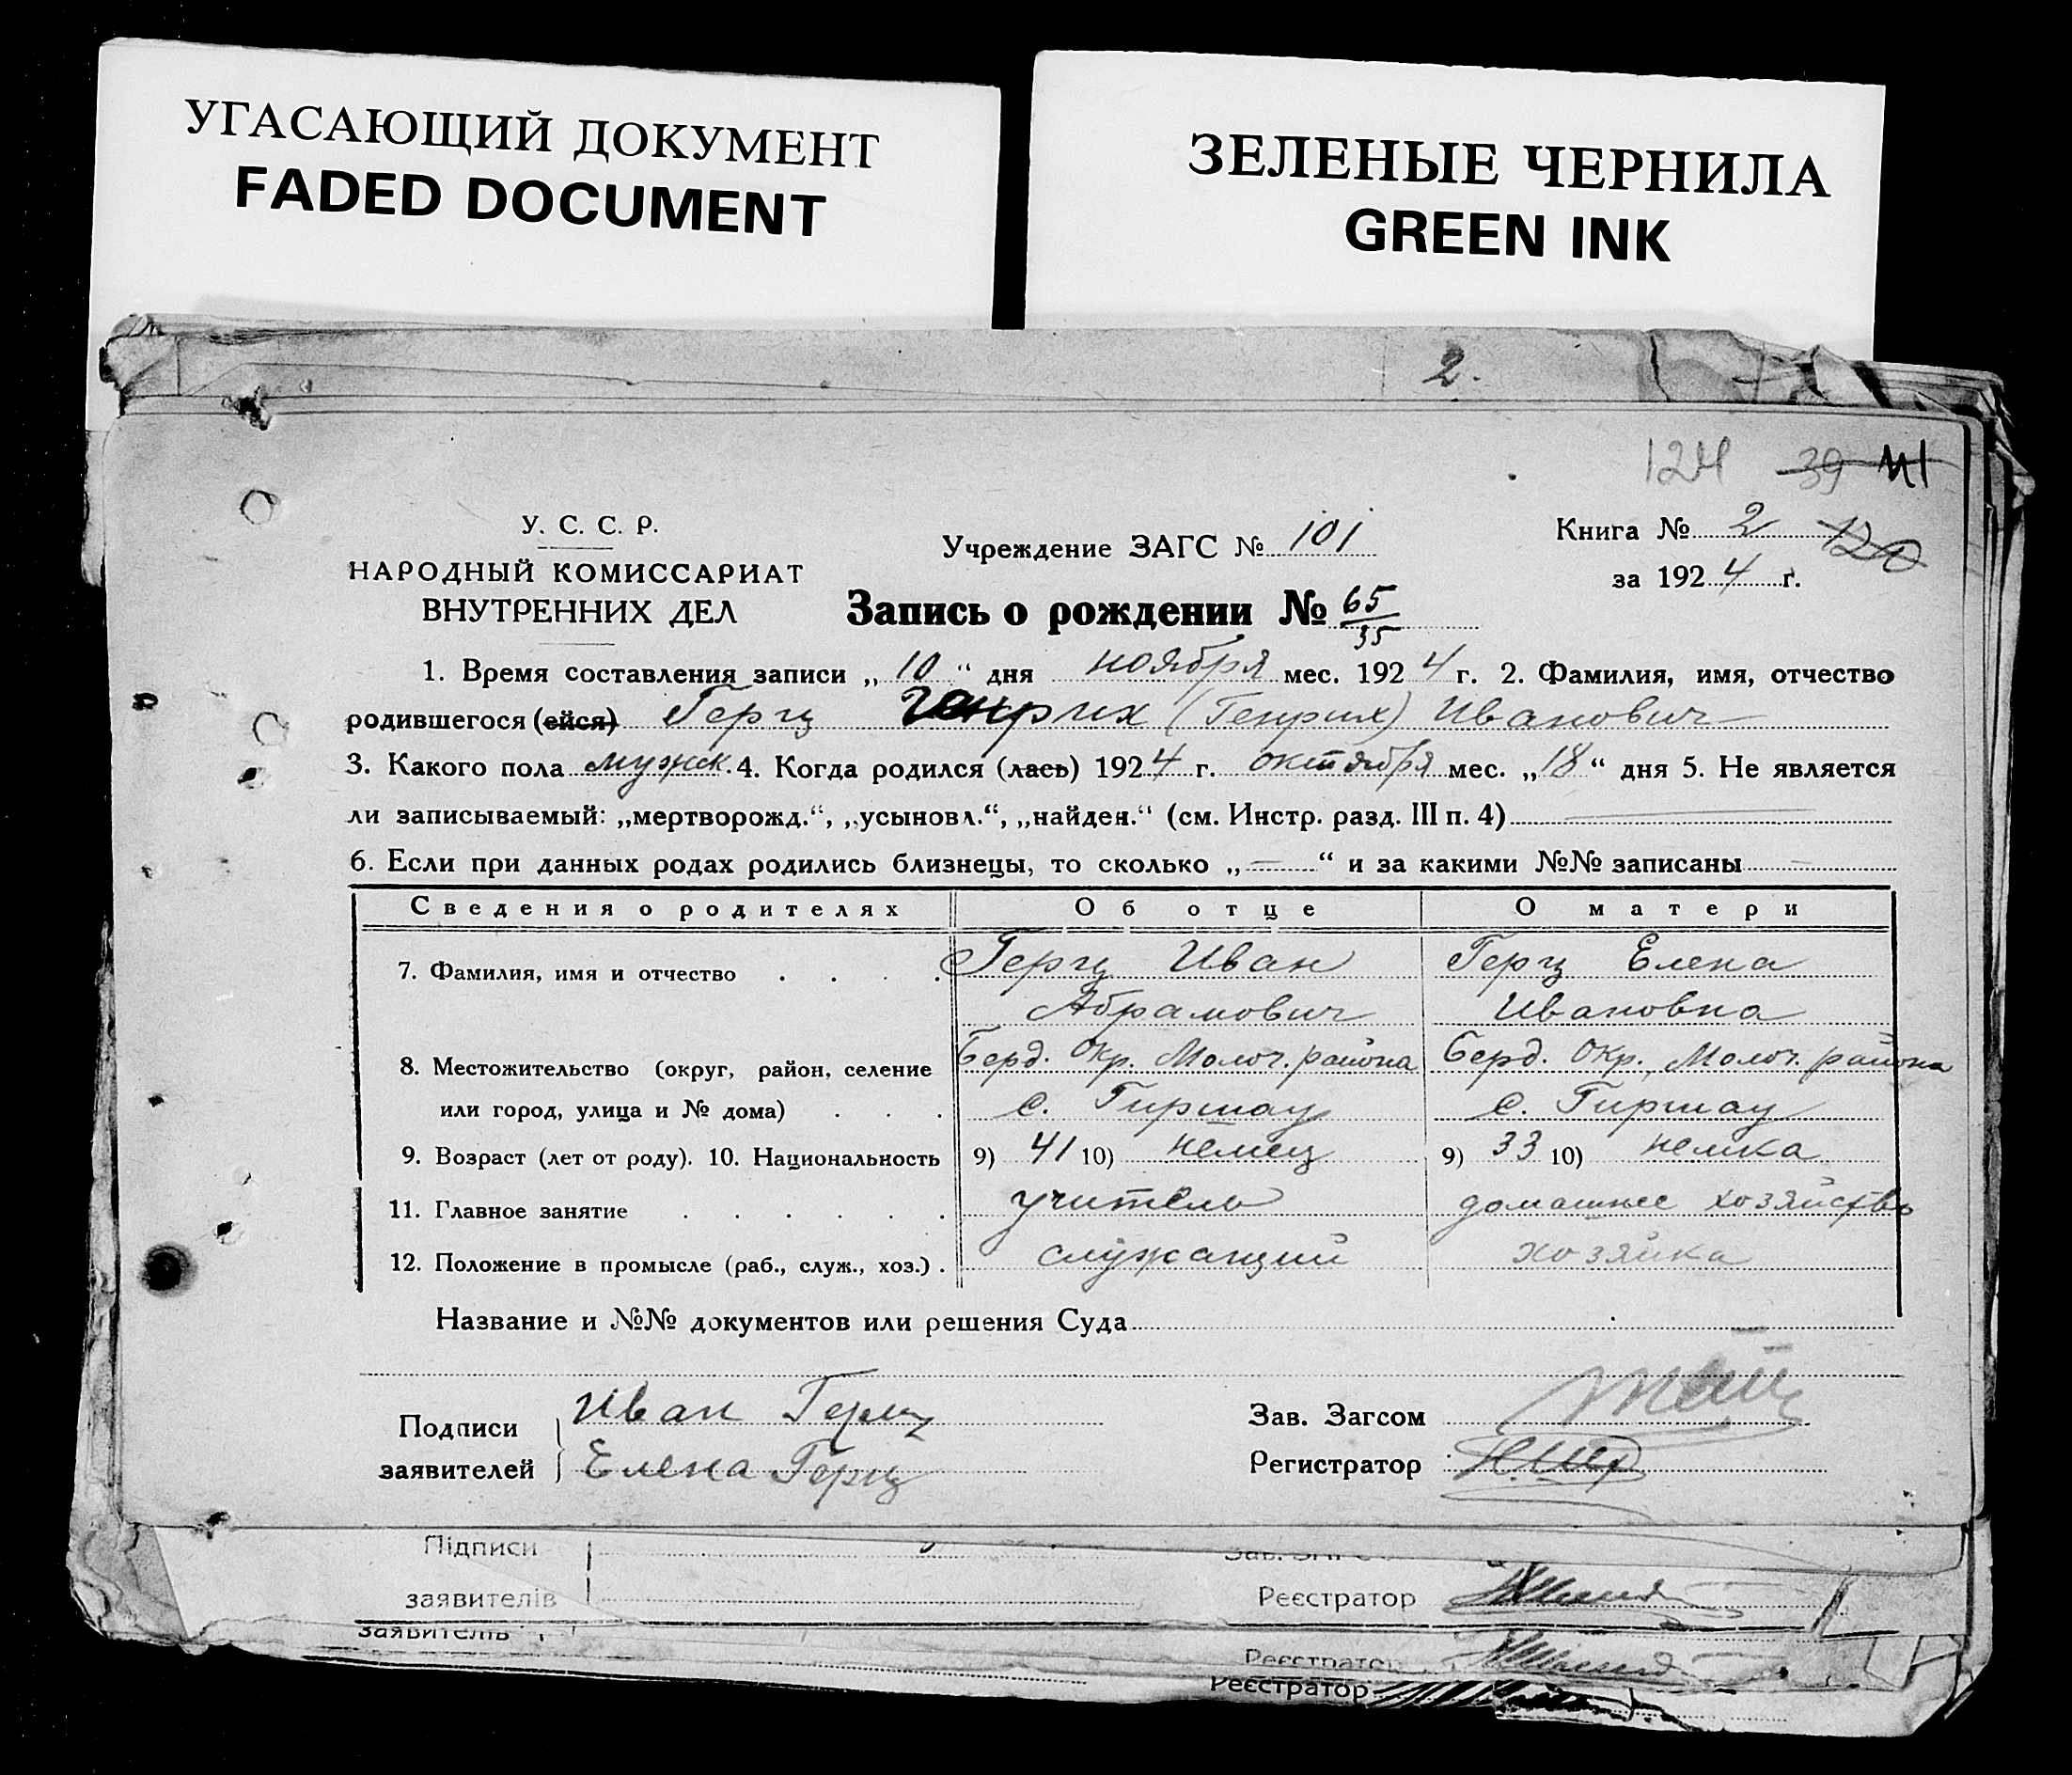 УГАСАЮЩИЙ ДОКУМЕНТ
FADED DOCUMENT
ЗЕЛЕНЫЕ ЧЕРНИЛА
GREEN INK
2.
124 39 41
У. С. С. Р.
НАРОДНЫЙ КОМИССАРИАТ
ВНУТРЕННИХ ДЕЛ
Учреждение ЗАГС № 101
Книга № 2 120
за 1924 г.
Запись о рождении № 65
35
1. Время составления записи „10“ дня ноября мес. 1924 г. 2. Фамилия, имя, отчество
родившегося (ейся) Герц Генрих (Генрих) Иванович
3. Какого пола мужск. 4. Когда родился (лась) 1924 г. октября мес. „18“ дня 5. Не является
ли записываемый: „мертворожд.“, „усыновл.“, „найден.“ (см. Инстр. разд. III п. 4)
6. Если при данных родах родились близнецы, то сколько „—“ и за какими №№ записаны —
Сведения о родителях Об отце О матери
7. Фамилия, имя и отчество Герц Иван Герц Елена
Абрамович Ивановна
8. Местожительство (округ, район, селение Берд. Окр. Молоч. района Берд. Окр. Молоч. района
или город, улица и № дома) с. Гиршау с. Гиршау
9. Возраст (лет от роду). 10. Национальность 9) 41 10) немец 9) 33 10) немка
11. Главное занятие учитель домашнее хозяйство
12. Положение в промысле (раб., служ., хоз.) служащий хозяйка
Название и №№ документов или решения Суда
Подписи Иван Герц
заявителей Елена Герц
Зав. Загсом
Регистратор
Підписи
заявителів
Зав. ЗАГС
Реєстратор
заявителів
Реєстратор
Реєстратор